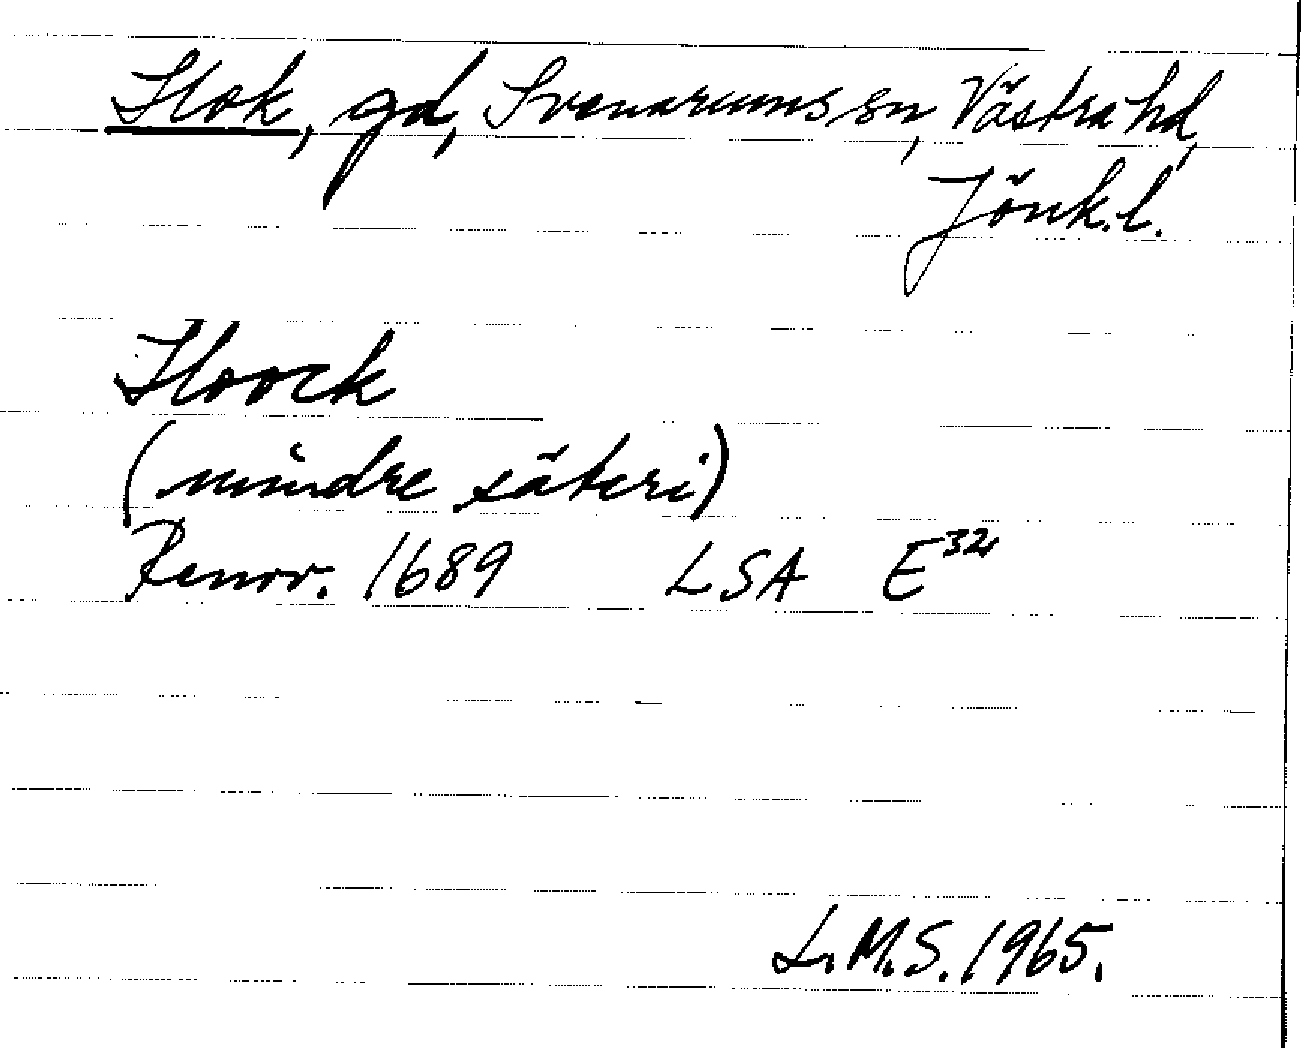 Hok, gd, Svenarums sn, Västra hd,
Jönk.l.
Hoock
(mindre säteri)
Renov. 1689 LSA E³²
L.M.S. 1965.